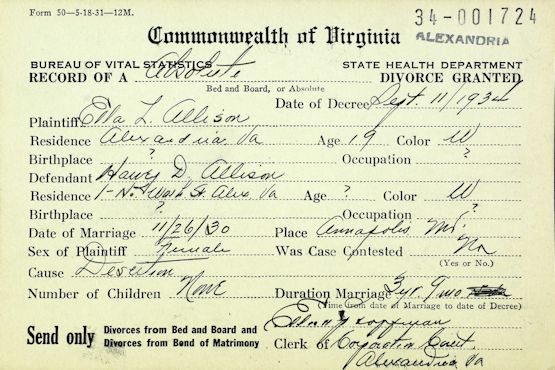 Form 50—5-18-31—12M.
34-001724
ALEXANDRIA
Commonwealth of Virginia
BUREAU OF VITAL STATISTICS STATE HEALTH DEPARTMENT
RECORD OF A Absolute DIVORCE GRANTED
Bed and Board, or Absolute
Date of Decree Sept. 11/1934
Plaintiff Ella L. Allison
Residence Alexandria Va Age 19 Color W
Birthplace ? Occupation ?
Defendant D. Allison
Residence St. Alex. Va Age ? Color W
Birthplace ? Occupation ?
Date of Marriage 11/26/30 Place Annapolis Md.
Sex of Plaintiff Female Was Case Contested No
(Yes or No.)
Cause Desertion
Number of Children None Duration Marriage 3 yr. 9 mo
(Time from date of Marriage to date of Decree)
Send only Divorces from Bed and Board and
Divorces from Bond of Matrimony
Hoffman
Clerk of Corporation Court
Alexandria Va